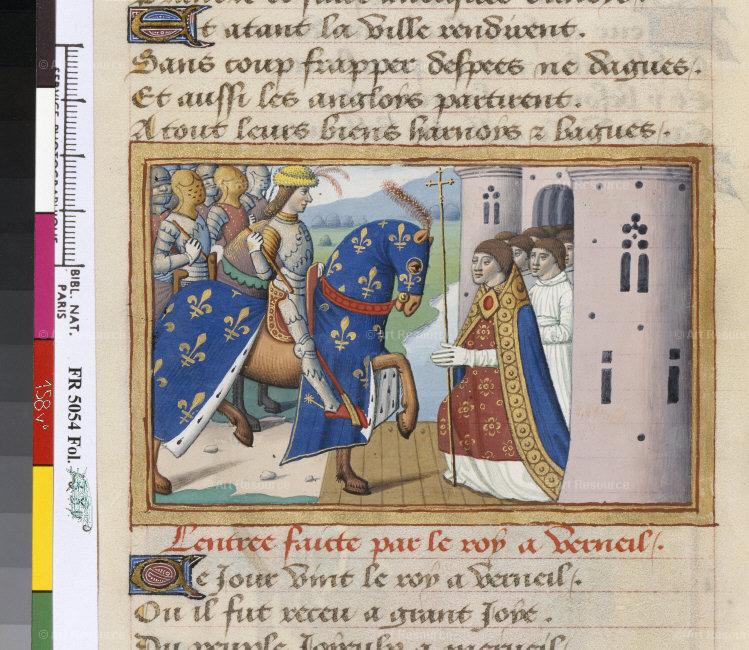 Et atant la ville rendirent.
Sans coup frapper despees ne dagues.
Et aussi les angloys partirent.
A tout leurs biens harnoys & bagues.
Lentree faicte par le roy a Verneil.
Ce Jour vint le roy a verneil.
Ou il fut receu a grant Joye.
Du peuple Joyeulx a merueil
SERVICE PHOTOGRAPHIQUE
BIBL. NAT.
PARIS
FR 5054 Fol.
158 vº
© Art Resource